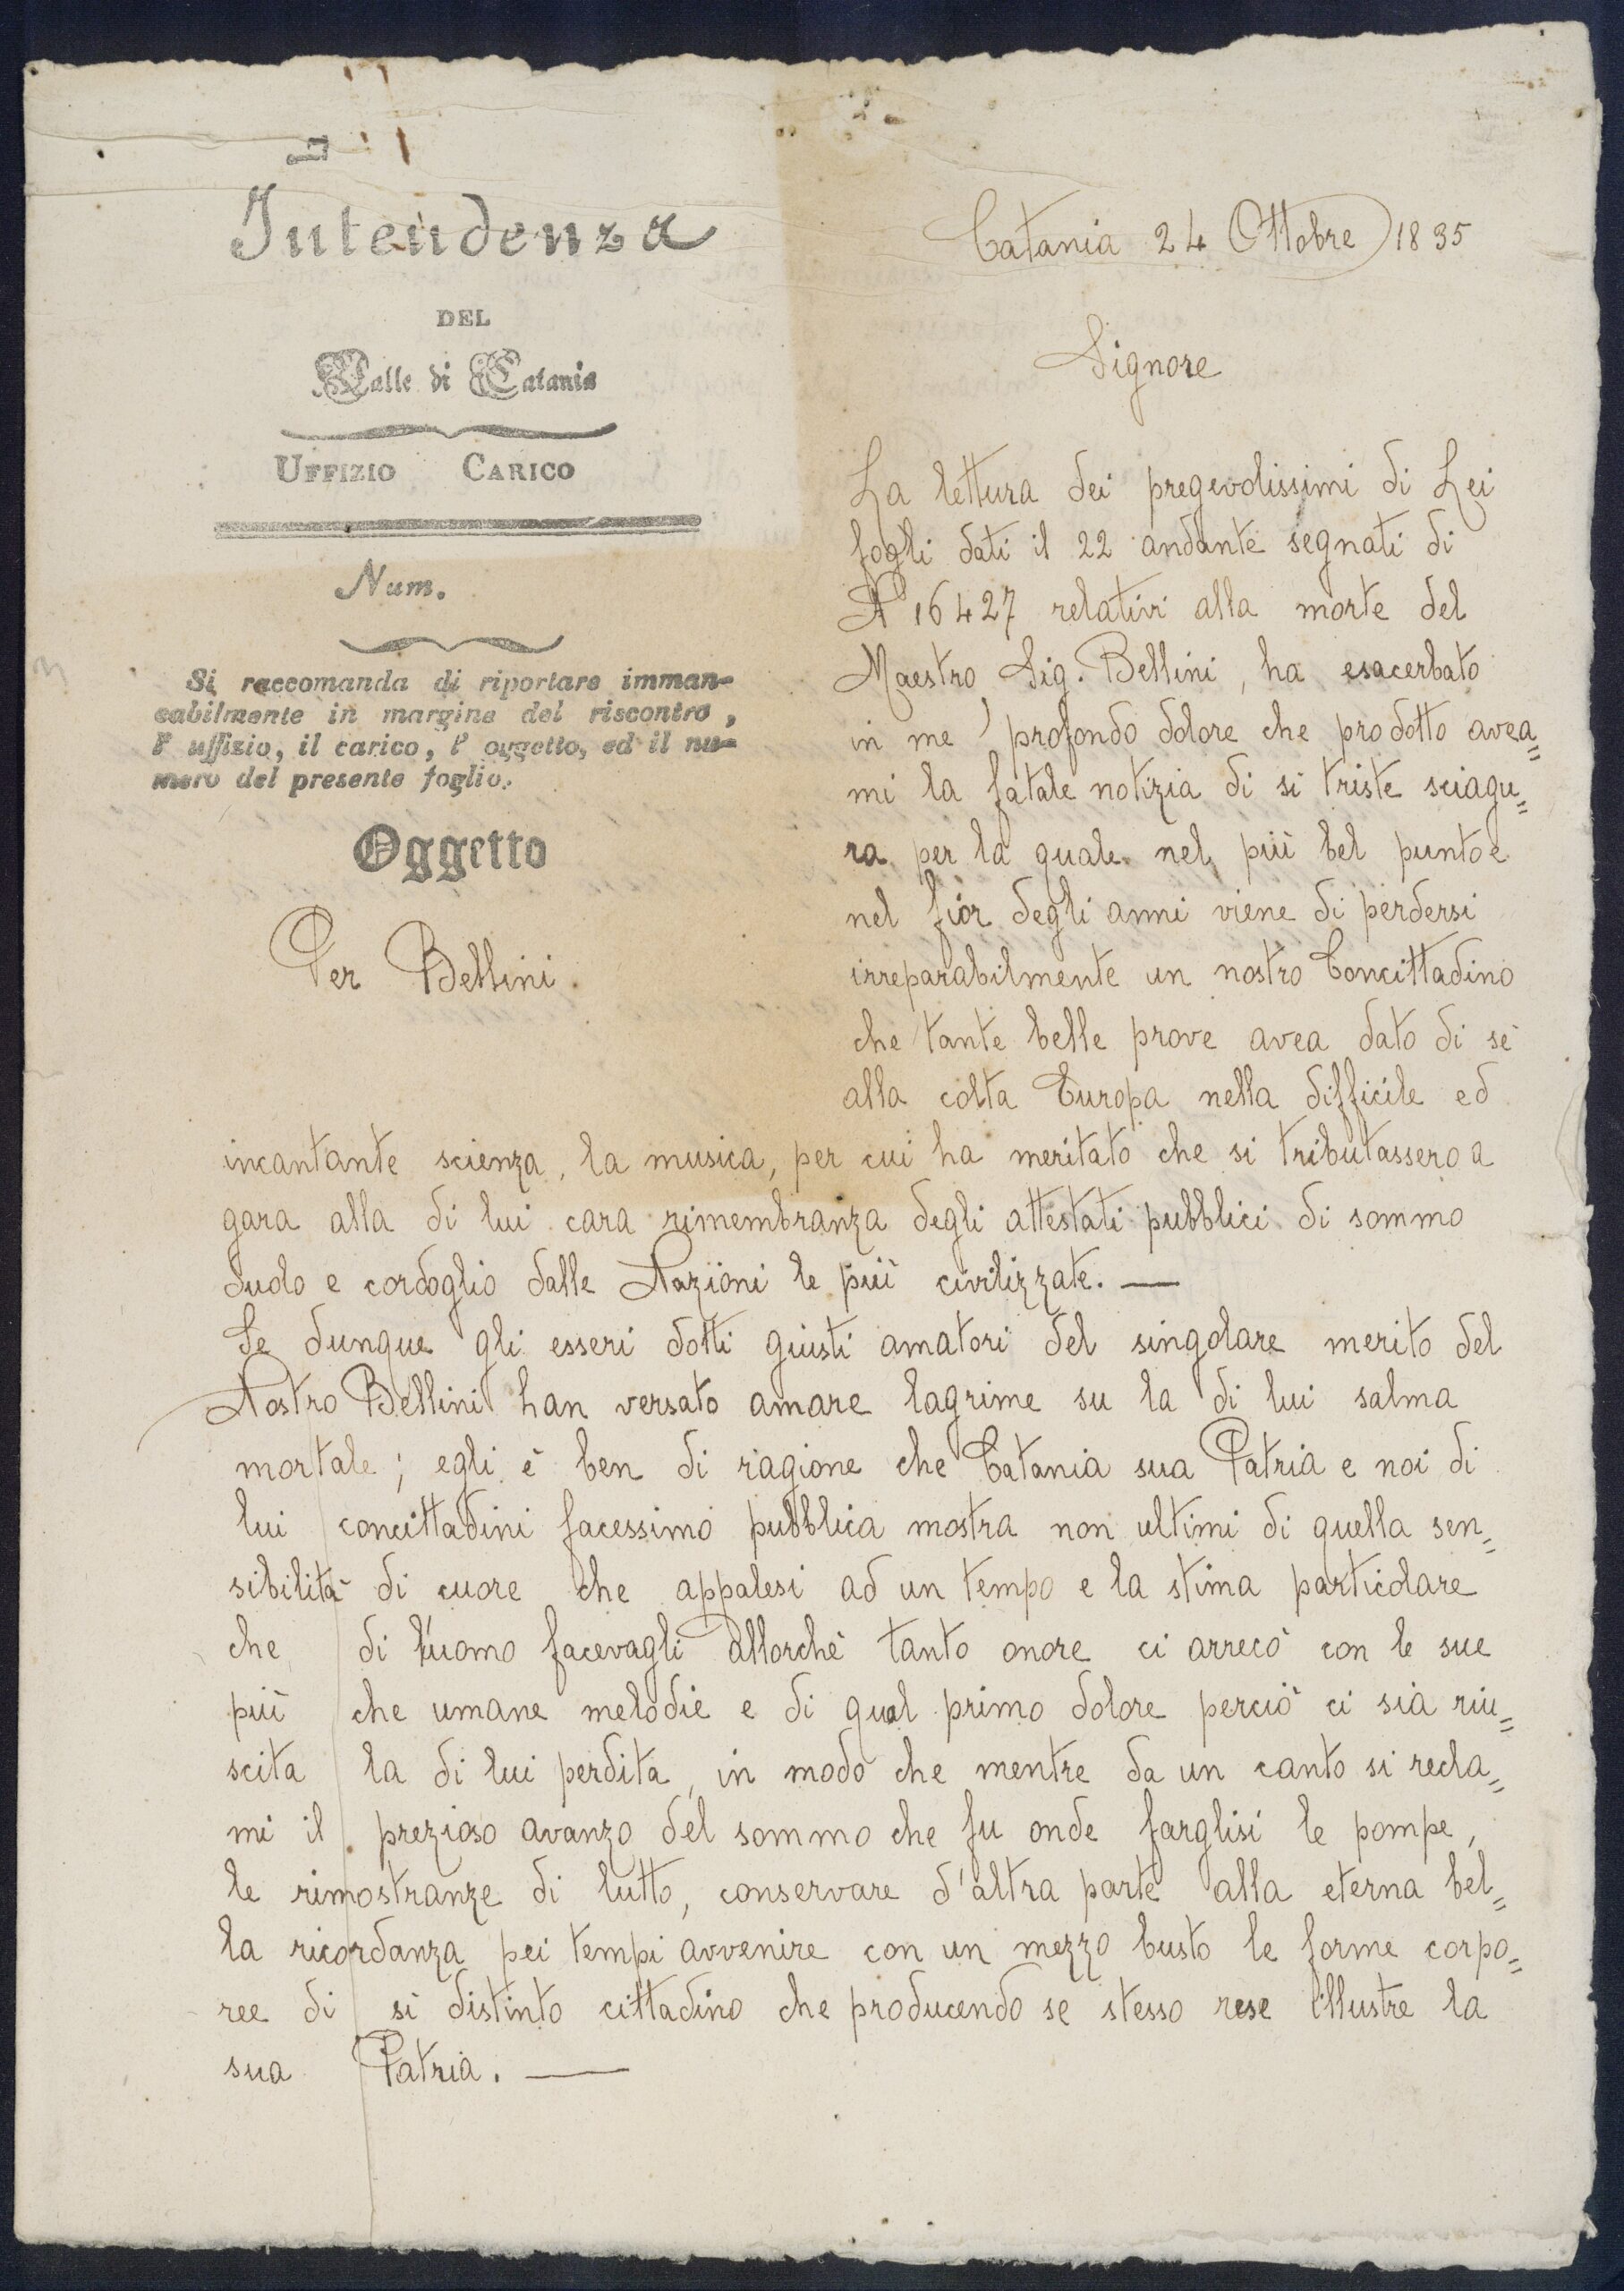 Intendenza
DEL
Valle di Catania
UFFIZIO CARICO
Num.
Si raccomanda di riportare imman-
cabilmente in margine del riscontro,
l' uffizio, il carico, l' oggetto, ed il nu-
mero del presente foglio.
Oggetto
Per Bellini.
Catania 24 Ottobre 1835
Signore
La lettura dei pregevolissimi di Lei
fogli dati il 22 andante segnati di
N 16427 relativi alla morte del
Maestro Sig. Bellini, ha esacerbato
in me profondo dolore che prodotto avea=
mi la fatale notizia di si triste sciagu=
ra per la quale nel più bel punto e
nel fior degli anni viene di perdersi
irreparabilmente un nostro Concittadino
che tante belle prove avea dato di sè
alla colta Europa nella difficile ed
incantante scienza, la musica, per cui ha meritato che si tributassero a
gara alla di lui cara rimembranza degli attestati pubblici di sommo
duolo e cordoglio dalle Nazioni le più civilizzate. —
Se dunque gli esseri dotti giusti amatori del singolare merito del
Nostro Bellini han versato amare lagrime su la di lui salma
mortale; egli è ben di ragione che Catania sua Patria e noi di
lui concittadini facessimo pubblica mostra non ultimi di quella sen=
sibilità di cuore che appalesi ad un tempo e la stima particolare
che di l'uomo facevagli allorchè tanto onore ci arrecò con le sue
più che umane melodie e di qual primo dolore perciò ci sia riu=
scita la di lui perdita, in modo che mentre da un canto si recla=
mi il prezioso avanzo del sommo che fu onde farglisi le pompe,
le rimostranze di lutto, conservare d'altra parte alla eterna bel=
la ricordanza pei tempi avvenire con un mezzo busto le forme corpo=
ree di si distinto cittadino che producendo se stesso rese illustre la
sua Patria. —